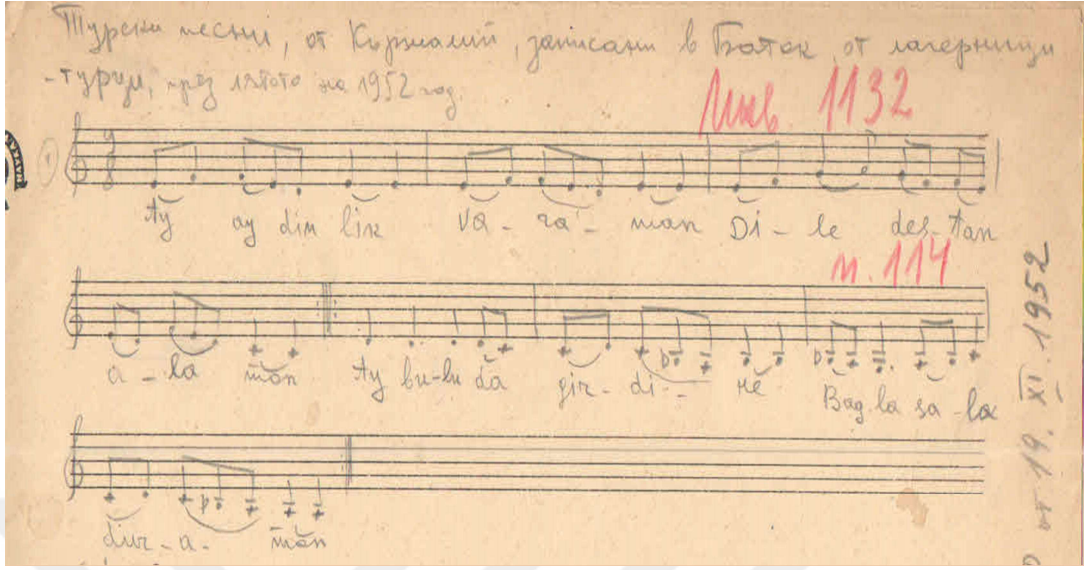 Турски песни, от Кърджалий, записани в Батак от лагерници
-турци, през лятото на 1952 год.
Инв 1132
1
7
8
Ay ay dim lik va - ra - man Di - le des - tan
п. 114
a - la man Ay bu - lu da gir - di - ne Bag la sa - la
dur - a - man
от 19. XI. 1952